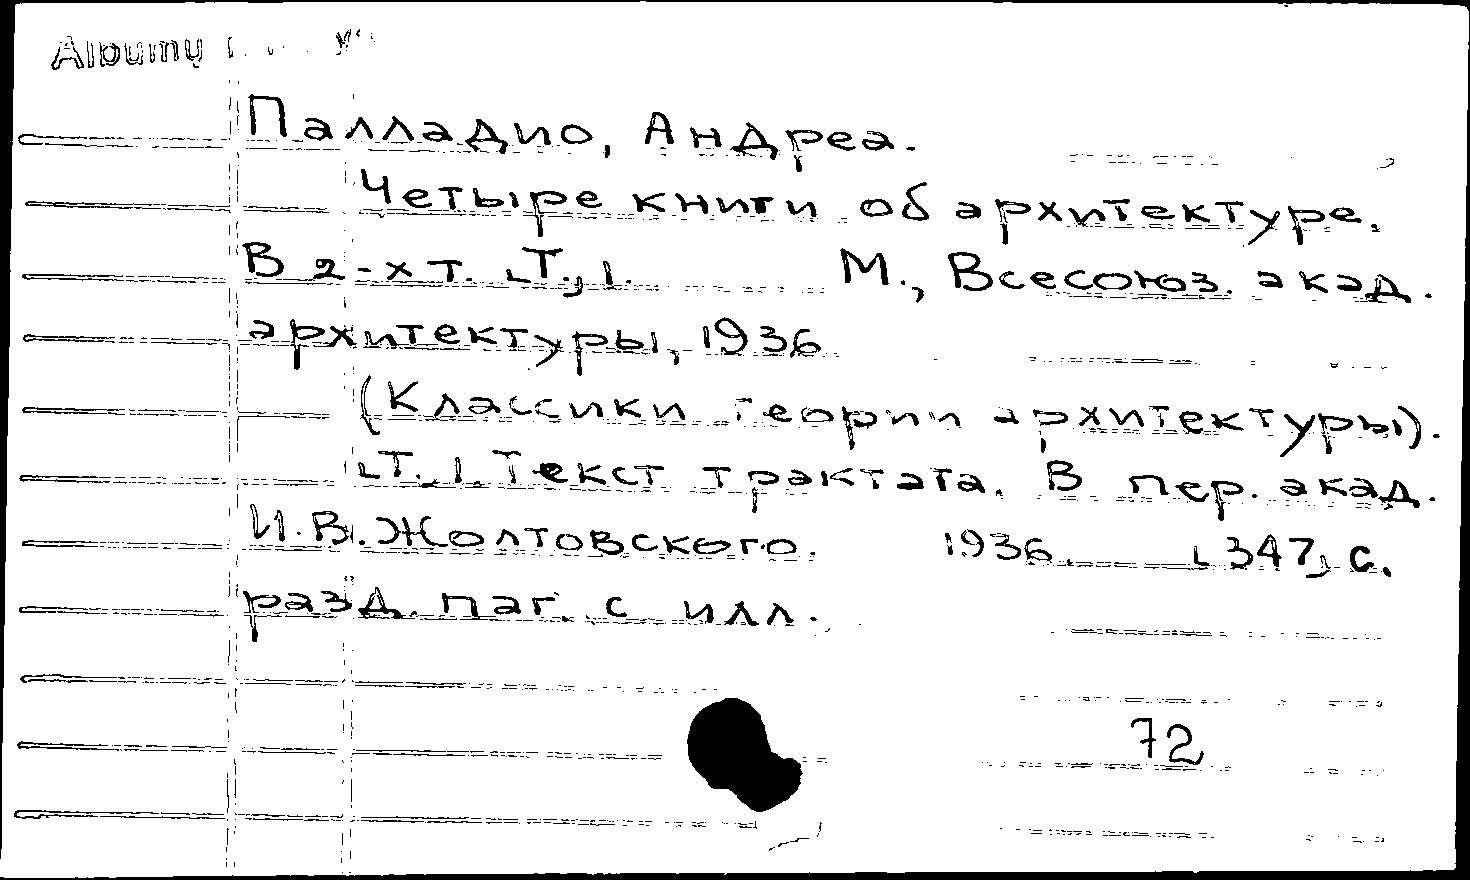 Albumy
Палладио, Андреа.
Четыре книги об архитектуре.
В 2-х т. [Т.] 1. М., Всесоюз. акад.
архитектуры, 1936
(Классики теории архитектуры).
[Т.] 1. Текст трактата. В пер. акад.
И.В. Жолтовского. 1936. [347] с.
разд. паг. с илл.
72